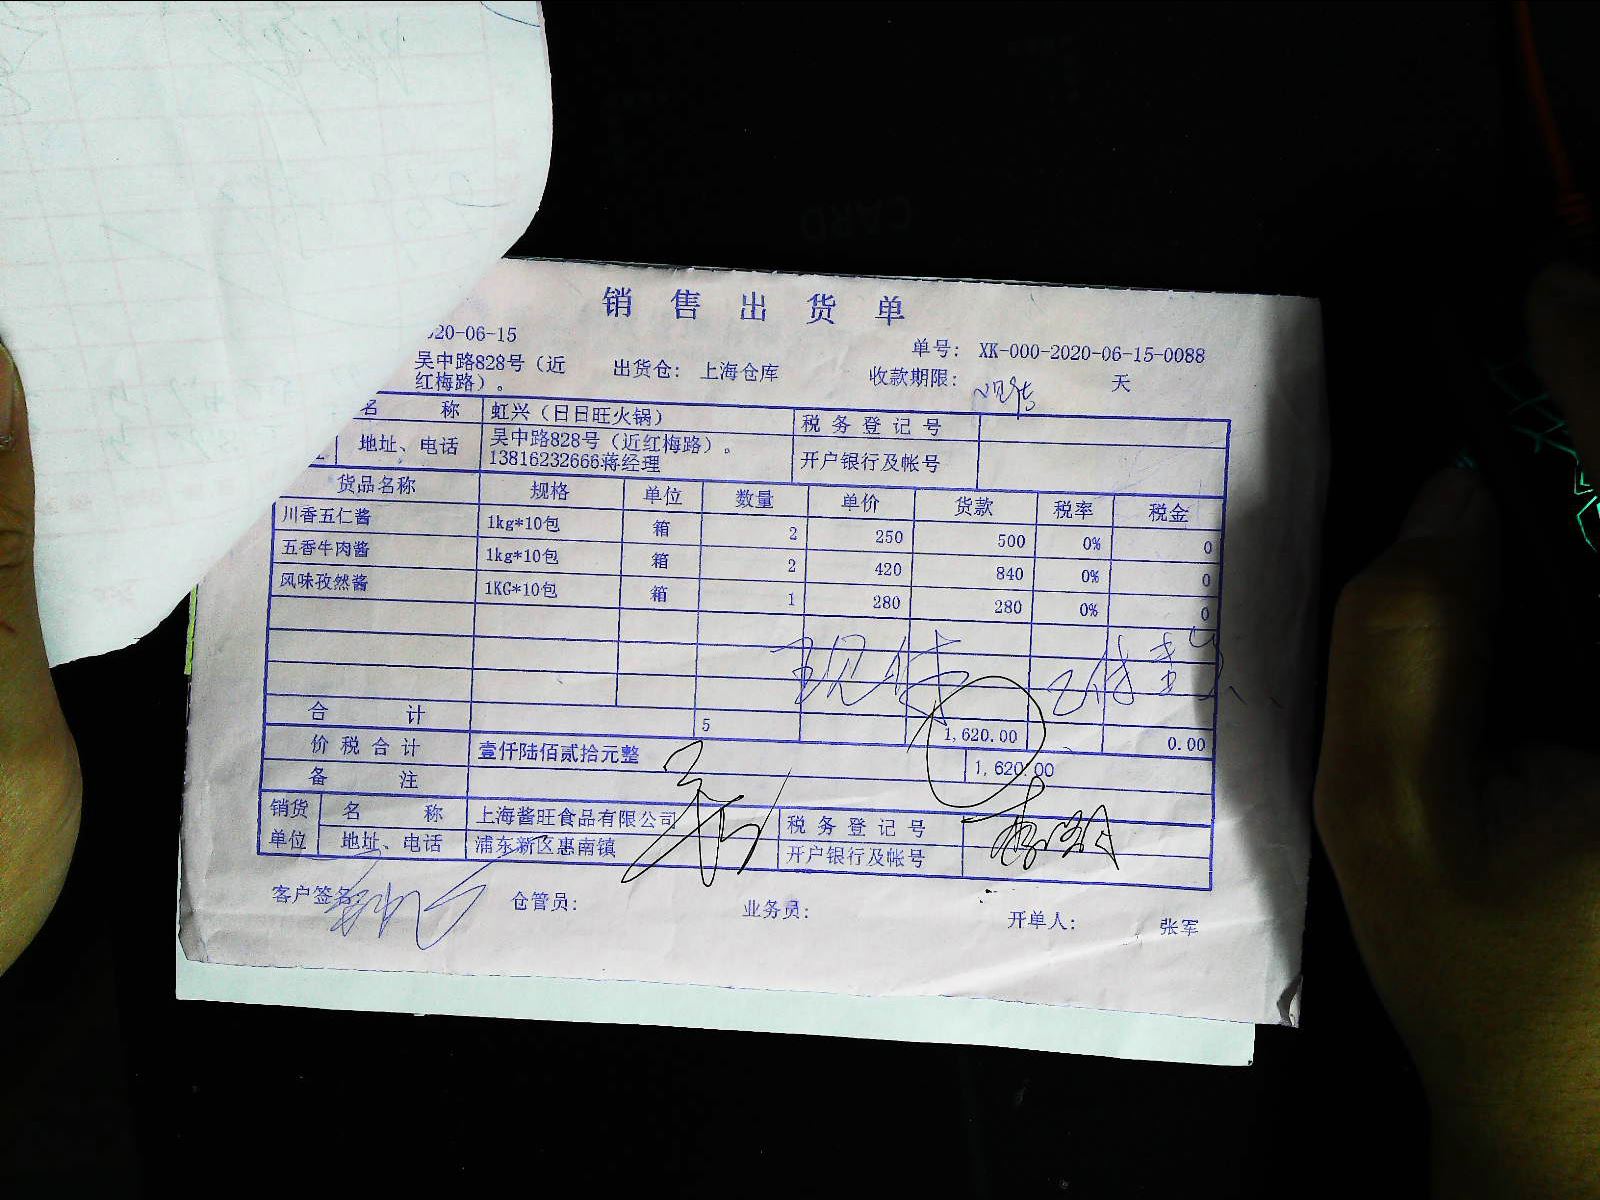 销售出货单
20-06-15
单号: XK-000-2020-06-15-0088
吴中路828号（近红梅路）。 出货仓: 上海仓库 收款期限: 现结 天
名 称 虹兴（日日旺火锅） 税务登记号
地址、电话 吴中路828号（近红梅路）。 13816232666蒋经理 开户银行及帐号
货品名称 规格 单位 数量 单价 货款 税率 税金
川香五仁酱 1kg*10包 箱 2 250 500 0% 0
五香牛肉酱 1kg*10包 箱 2 420 840 0% 0
风味孜然酱 1KG*10包 箱 1 280 280 0% 0
合 计 5 1,620.00 0.00
价税合计 壹仟陆佰贰拾元整 1,620.00
备 注
销货单位 名 称 上海酱旺食品有限公司 税务登记号
地址、电话 浦东新区惠南镇 开户银行及帐号
客户签名: 仓管员: 业务员: 开单人: 张军
CARD